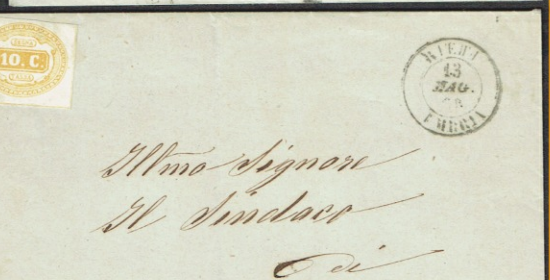 10. C.
RIETI
13
MAG.
UMBRIA
Illmo Signore
Il Sindaco
di